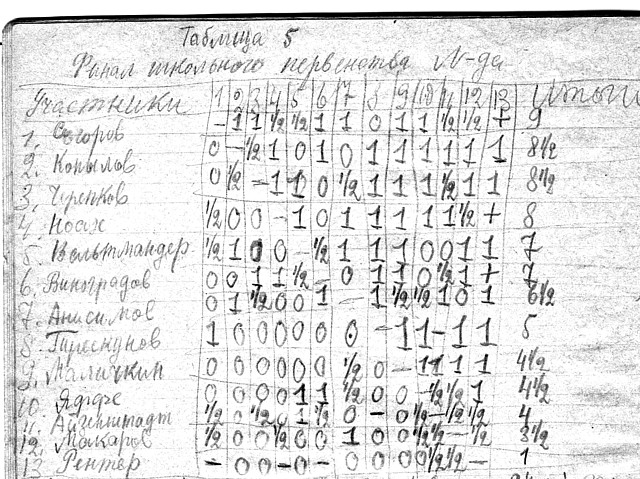 Таблица 5
Финал школьного первенства N-да
Участники 1 2 3 4 5 6 7 8 9 10 11 12 13 Итоги
1. Егоров - 1 1 ½ ½ 1 1 0 1 1 ½ ½ + 9
2. Копылов 0 - ½ 1 0 1 0 1 1 1 1 1 1 8½
3. Чупенков 0 ½ - 1 1 0 ½ 1 1 1 ½ 1 1 8½
4. Ноах ½ 0 0 - 1 0 1 1 1 1 1 ½ + 8
5. Вельтмандер ½ 1 0 0 - ½ 1 1 1 0 0 1 1 7
6. Виноградов 0 0 1 1 ½ - 0 1 1 0 ½ 1 + 7
7. Анисимов 0 1 ½ 0 0 1 - 1 ½ ½ 1 0 1 6½
8. Пирескунов 1 0 0 0 0 0 0 - 1 1 - 1 1 5
9. Маличкин 0 0 0 0 0 0 ½ 0 - 1 1 1 1 4½
10. Яффе 0 0 0 0 1 1 ½ 0 0 - ½ ½ 1 4½
11. Айзенштадт ½ 0 ½ 0 1 ½ 0 - 0 ½ - ½ ½ 4
12. Макаров ½ 0 0 ½ 0 0 1 0 0 ½ ½ - ½ 3½
13. Рентер - 0 0 - 0 - 0 0 0 0 ½ ½ - 1